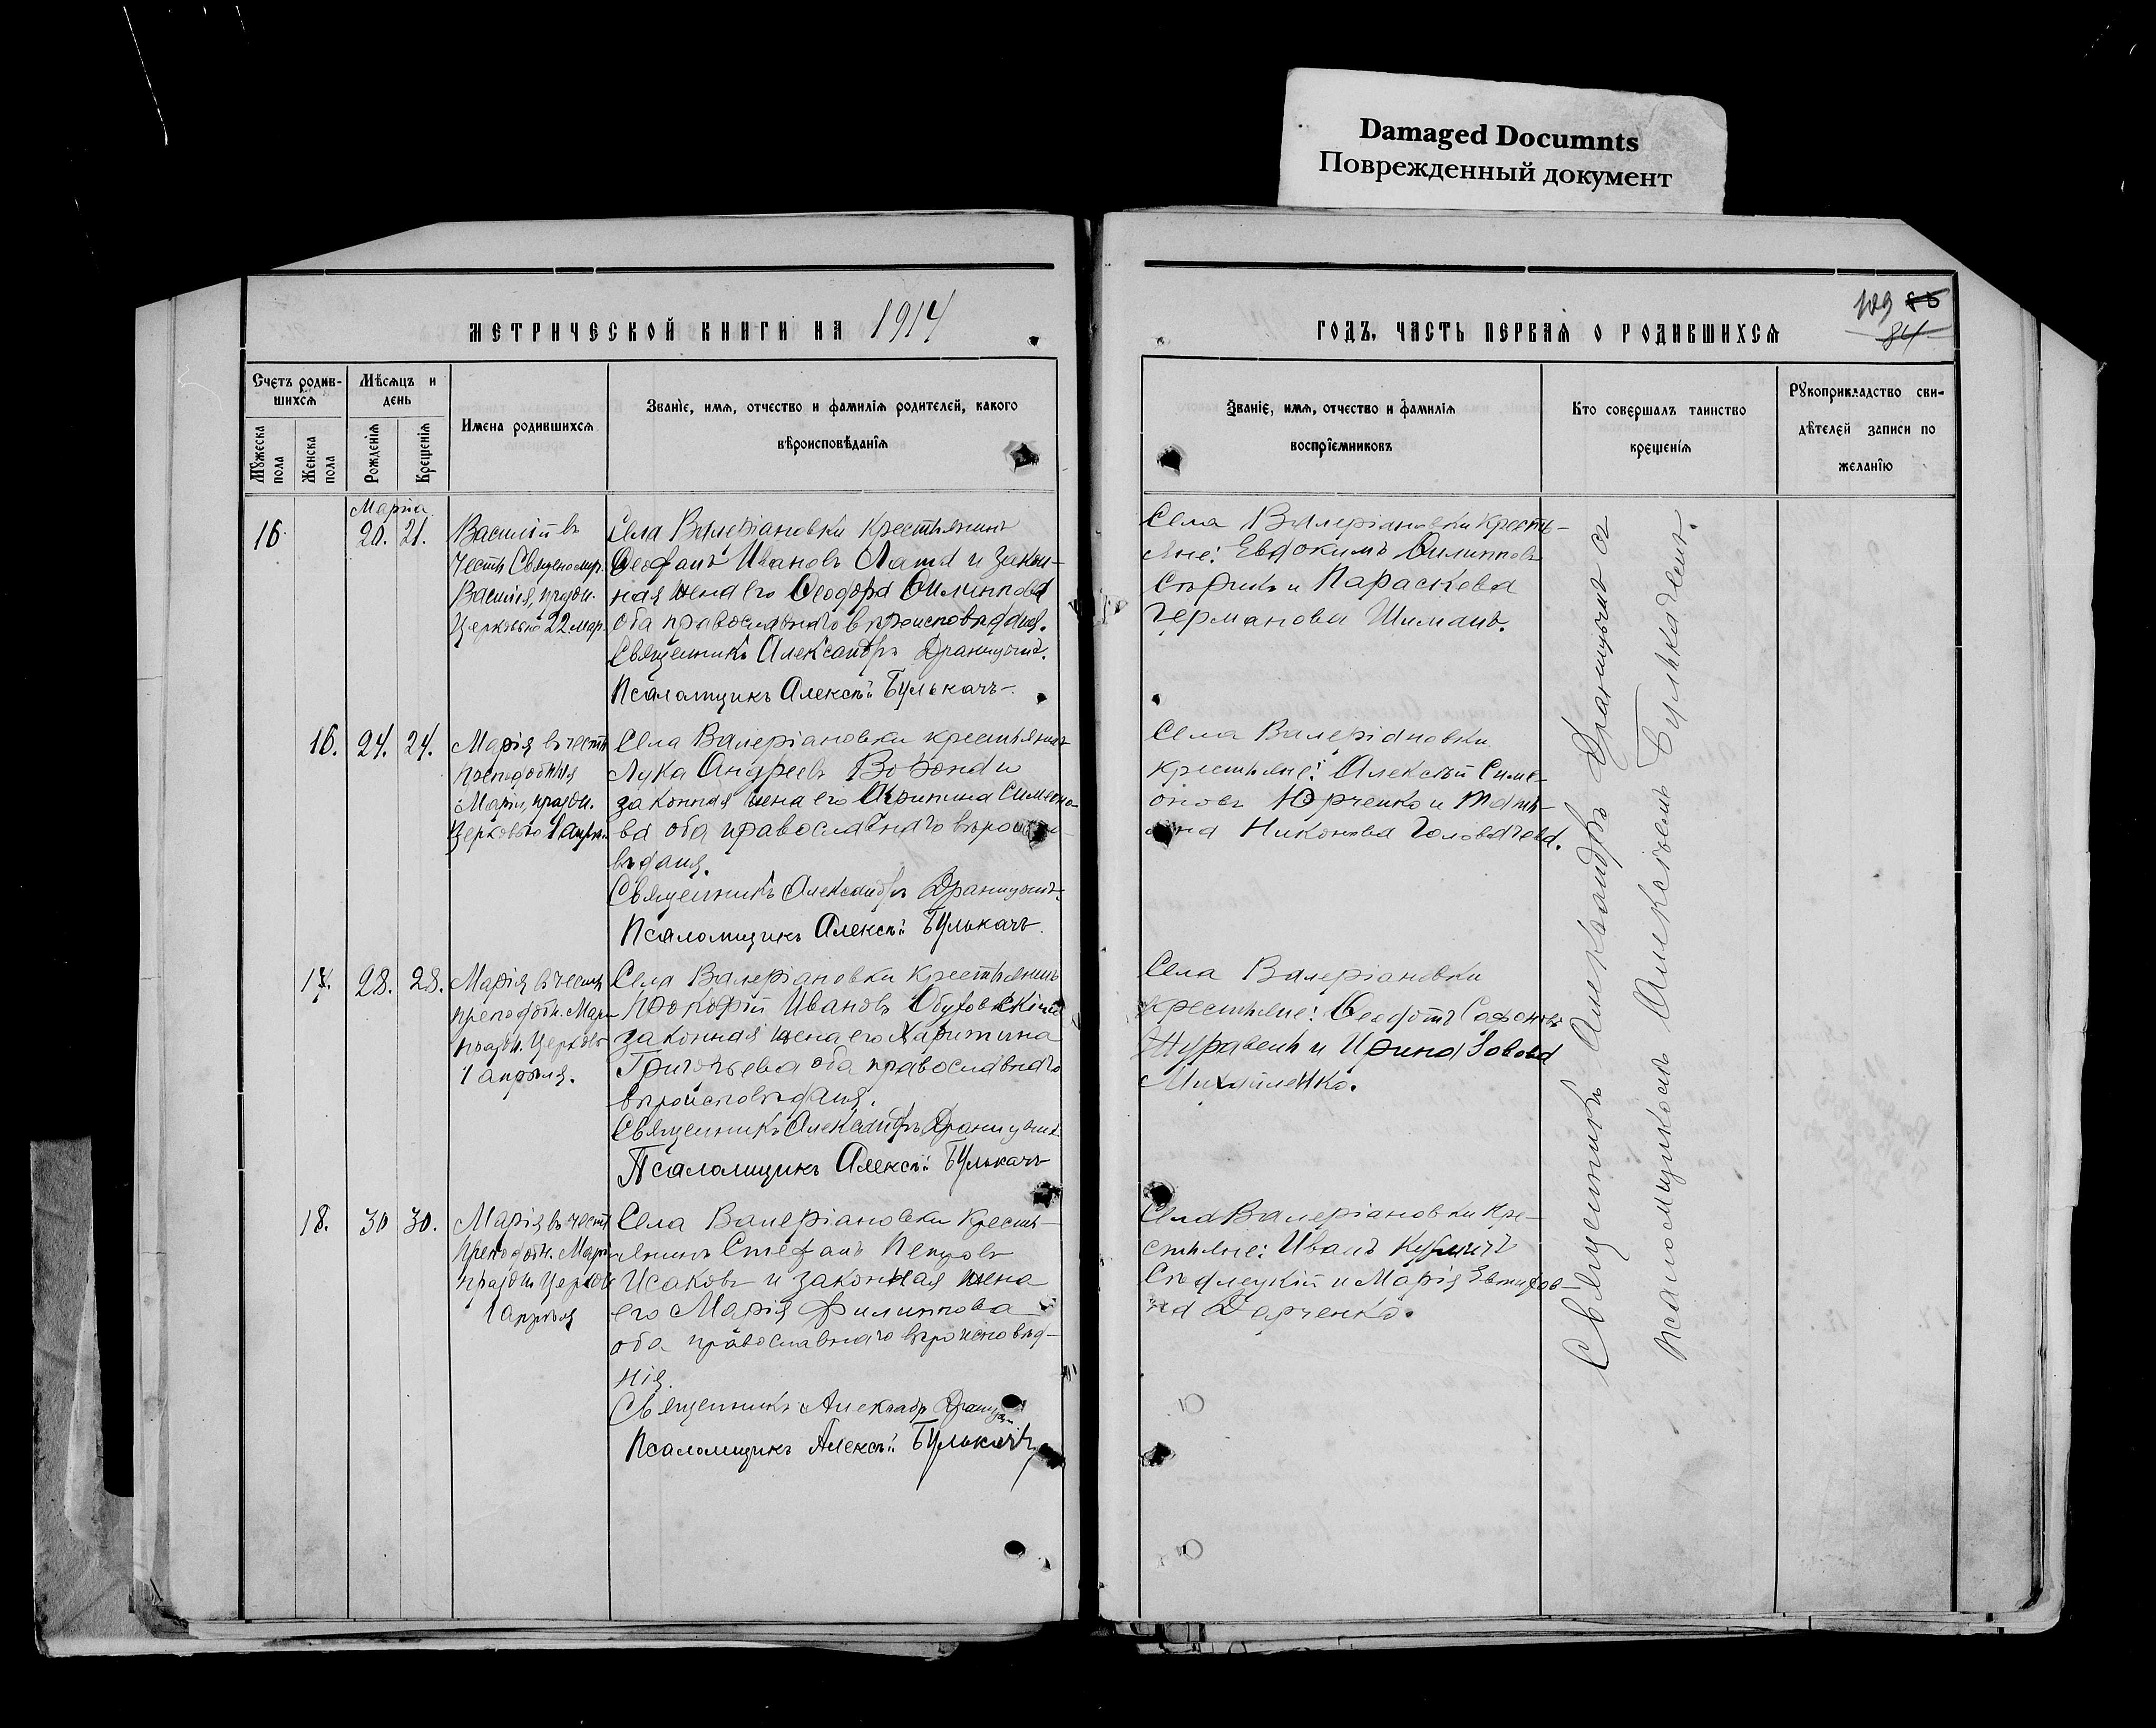 Damaged Documnts
Поврежденный документ
МЕТРИЧЕСКОЙ КНИГИ НА 1914
ГОДЪ, ЧАСТЬ ПЕРВАЯ О РОДИВШИХСЯ
109 85
84
Счетъ родив-
шихся
Мѣсяцъ и
день
Мужеска
пола
Женска
пола
Рожденія
Крещенія
Имена родившихся
Званіе, имя, отчество и фамилія родителей, какого
вѣроисповѣданія
Званіе, имя, отчество и фамилія
воспріемниковъ
Кто совершалъ таинство
крещенія
Рукоприкладство сви-
дѣтелей записи по
желанію
Марта
16. 20. 21.
Василій въ
честь Священомуч.
Василія, праздн.
Церковью 22 мар.
Села Валеріановки крестьянинъ
Ѳеофанъ Ивановъ Лата и закон-
ная жена его Ѳеодора Филиппова
оба православнаго вѣроисповѣданія.
Священникъ Александръ
Псаломщикъ Алексѣй Булькачъ
Села Валеріановки кресть-
яне: Евдокимъ Филипповъ
и Параскева
Германова Шиманъ.
16. 24. 24.
Марія въ честь
преподобныя
Маріи, праздн.
Церковью 1 апрѣл.
Села Валеріановки крестьянинъ
Лука Андреевъ и
законная жена его Симеоно-
ва оба православнаго вѣроиспо-
вѣданія.
Священникъ Александръ
Псаломщикъ Алексѣй Булькачъ.
Села Валеріановки
крестьяне: Алексѣй Симе-
оновъ Юрченко и Тать-
яна Никонова Головачева.
17. 28. 28.
Марія въ честь
преподобн. Маріи
праздн. Церковью
1 апрѣля.
Села Валеріановки крестьянинъ
Прокофій Ивановъ Обуховскій и
законная жена его Харитина
Григорьева оба православнаго
вѣроисповѣданія.
Священникъ Александръ
Псаломщикъ Алексѣй Булькачъ
Села Валеріановки
крестьяне: Ѳеодотъ Сафоновъ
Журавель и Ирина
Михайленко.
18. 30 30.
Марія въ честь
преподобн. Маріи
праздн. Церковью
1 апрѣля
Села Валеріановки кресть-
янинъ Стефанъ Петровъ
Исаковъ и законная жена
его Марія Филиппова
оба православнаго вѣроисповѣда-
нія.
Священникъ Александръ
Псаломщикъ Алексѣй Булькачъ
Села Валеріановки кре-
стьяне: Иванъ
и Марія
на Дарченко.
Священникъ Александръ съ
псаломщикомъ Алексѣемъ Булькачемъ.